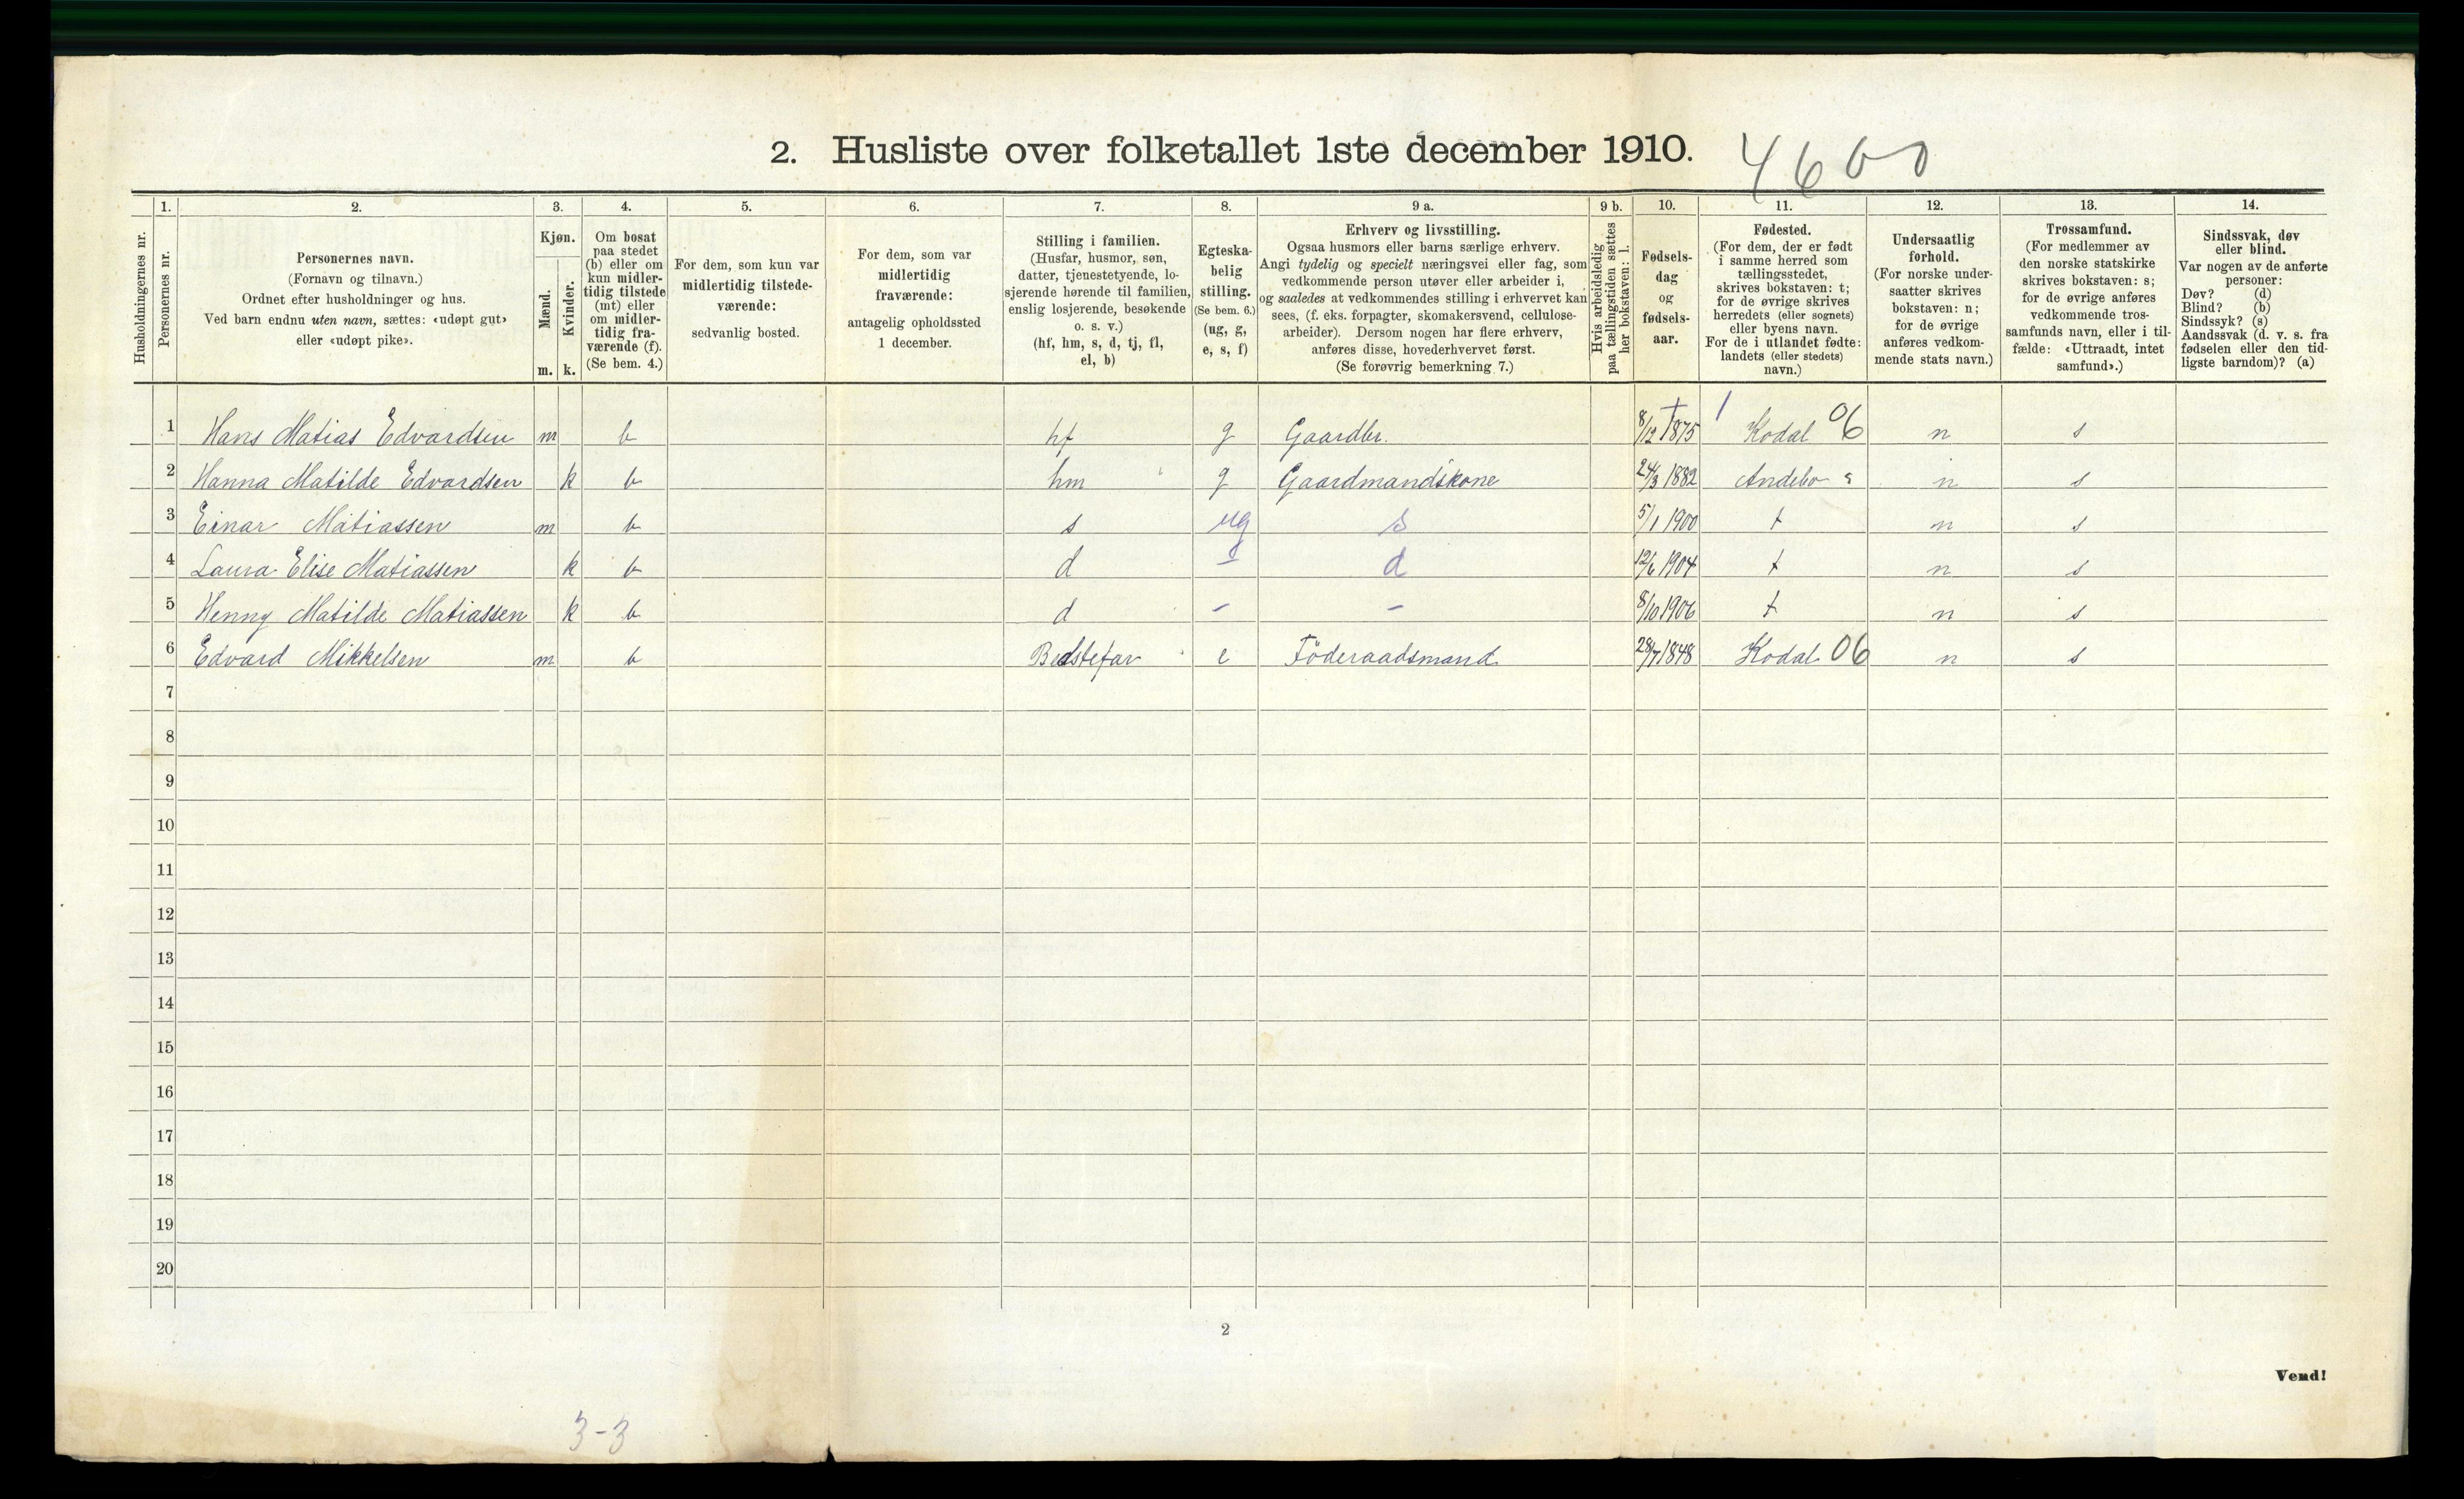 2. Husliste over folketallet 1ste december 1910.
4600
Husholdningernes nr.
1.
Personernes nr.
2.
Personernes navn.
(Fornavn og tilnavn.)
Ordnet efter husholdninger og hus.
Ved barn endnu uten navn, sættes: «udøpt gut»
eller «udøpt pike».
3.
Kjøn.
Mænd.
Kvinder.
m. k.
4.
Om bosat
paa stedet
(b) eller om
kun midler-
tidig tilstede
(mt) eller
om midler-
tidig fra-
værende (f).
(Se bem. 4.)
5.
For dem, som kun var
midlertidig tilstede-
værende:
sedvanlig bosted.
6.
For dem, som var
midlertidig
fraværende:
antagelig opholdssted
1 december.
7.
Stilling i familien.
(Husfar, husmor, søn,
datter, tjenestetyende, lo-
sjerende hørende til familien,
enslig losjerende, besøkende
o. s. v.)
(hf, hm, s, d, tj, fl,
el, b)
8.
Egteska-
belig
stilling.
(Se bem. 6.)
(ug, g,
e, s, f)
9 a.
Erhverv og livsstilling.
Ogsaa husmors eller barns særlige erhverv.
Angi tydelig og specielt næringsvei eller fag, som
vedkommende person utøver eller arbeider i,
og saaledes at vedkommendes stilling i erhvervet kan
sees, (f. eks. forpagter, skomakersvend, cellulose-
arbeider). Dersom nogen har flere erhverv,
anføres disse, hovederhvervet først.
(Se forøvrig bemerkning 7.)
9 b.
Hvis arbeidsledig
paa tællingstiden sættes
her bokstaven: l.
10.
Fødsels-
dag
og
fødsels-
aar.
11.
Fødested.
(For dem, der er født
i samme herred som
tællingsstedet,
skrives bokstaven: t;
for de øvrige skrives
herredets (eller sognets)
eller byens navn.
For de i utlandet fødte:
landets (eller stedets)
navn.)
12.
Undersaatlig
forhold.
(For norske under-
saatter skrives
bokstaven: n;
for de øvrige
anføres vedkom-
mende stats navn.)
13.
Trossamfund.
(For medlemmer av
den norske statskirke
skrives bokstaven: s;
for de øvrige anføres
vedkommende tros-
samfunds navn, eller i til-
fælde: «Uttraadt, intet
samfund».)
14.
Sindssvak, døv
eller blind.
Var nogen av de anførte
personer:
Døv? (d)
Blind? (b)
Sindssyk? (s)
Aandssvak (d. v. s. fra
fødselen eller den tid-
ligste barndom)? (a)
1 Hans Matias Edvardsen m b hf g Gaardbr. 8/12 1875 Kodal 06 n s
2 Hanna Matilde Edvardsen k b hm g Gaardmandskone 24/3 1882 Andebo n s
3 Einar Matiassen m b s ug s 5/1 1900 t n s
4 Laura Elise Matiassen k b d - d 12/6 1904 t n s
5 Henny Matilde Matiassen k b d - - 8/10 1906 t n s
6 Edvard Mikkelsen m b Bedstefar e Föderaadsmand 28/7 1848 Kodal 06 n s
7
8
9
10
11
12
13
14
15
16
17
18
19
20
2
Vend!
3-3